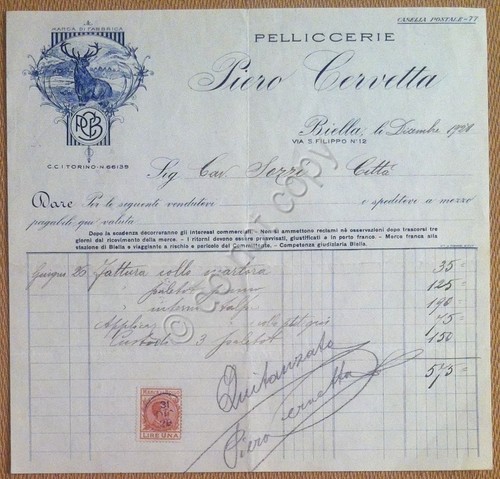 CASELLA POSTALE-77
MARCA DI FABBRICA
PELLICCERIE
Piero Cervetta
PCB
Biella, li Dicembre 1928
VIA S. FILIPPO N°12
C.C.I. TORINO-N.66135
Sig Cav. Serri Città
Dare Per le seguenti vendutevi e speditevi a mezzo
pagabili qui valuta
Dopo la scadenza decorreranno gli interessi commerciali. - Non si ammettono reclami nè osservazioni dopo trascorsi tre
giorni dal ricevimento della merce. - I ritorni devono essere preavvisati, giustificati e in porto franco. - Merce franca alla
stazione di Biella e viaggiante a rischio e pericolo del Committente. - Competenza giudiziaria Biella.
Giugno 26 fattura collo 35=
paletot 125=
190=
75=
Custodia 3 paletot 150
575=
Quitanzata
Piero Cervetta
LIRE UNA
© copy